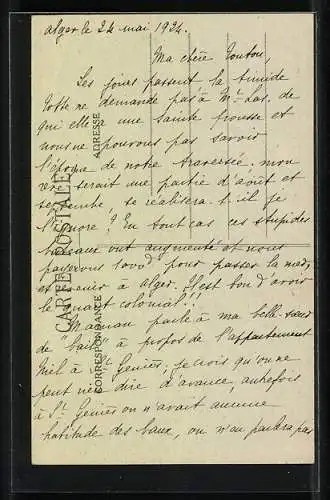 Alger le 24 mai 1934.
Ma chère Toutou,
Les jours passent la timide
Totte ne demande pas à Mr Las. de
qui elle a une sainte frousse et
nous ne pouvons pas savoir
l'époque de notre traversée. mon
rêve serait une partie d'août et
septembre, se réalisera t-il je
l'ignore! En tout cas ces stupides
bateaux ont augmenté et nous
payerons pour passer la mer,
et revenir à Alger. C'est bon d'avoir
le quart colonial!!
Maman parle à ma belle-sœur
de "bail" à propos de l'appartement
Niel à St Geniès, je crois qu'on ne
peut rien dire d'avance, autrefois
à St Geniès on n'avait aucune
habitude des baux, on n'en parlera pas
CARTE POSTALE
CORRESPONDANCE
ADRESSE